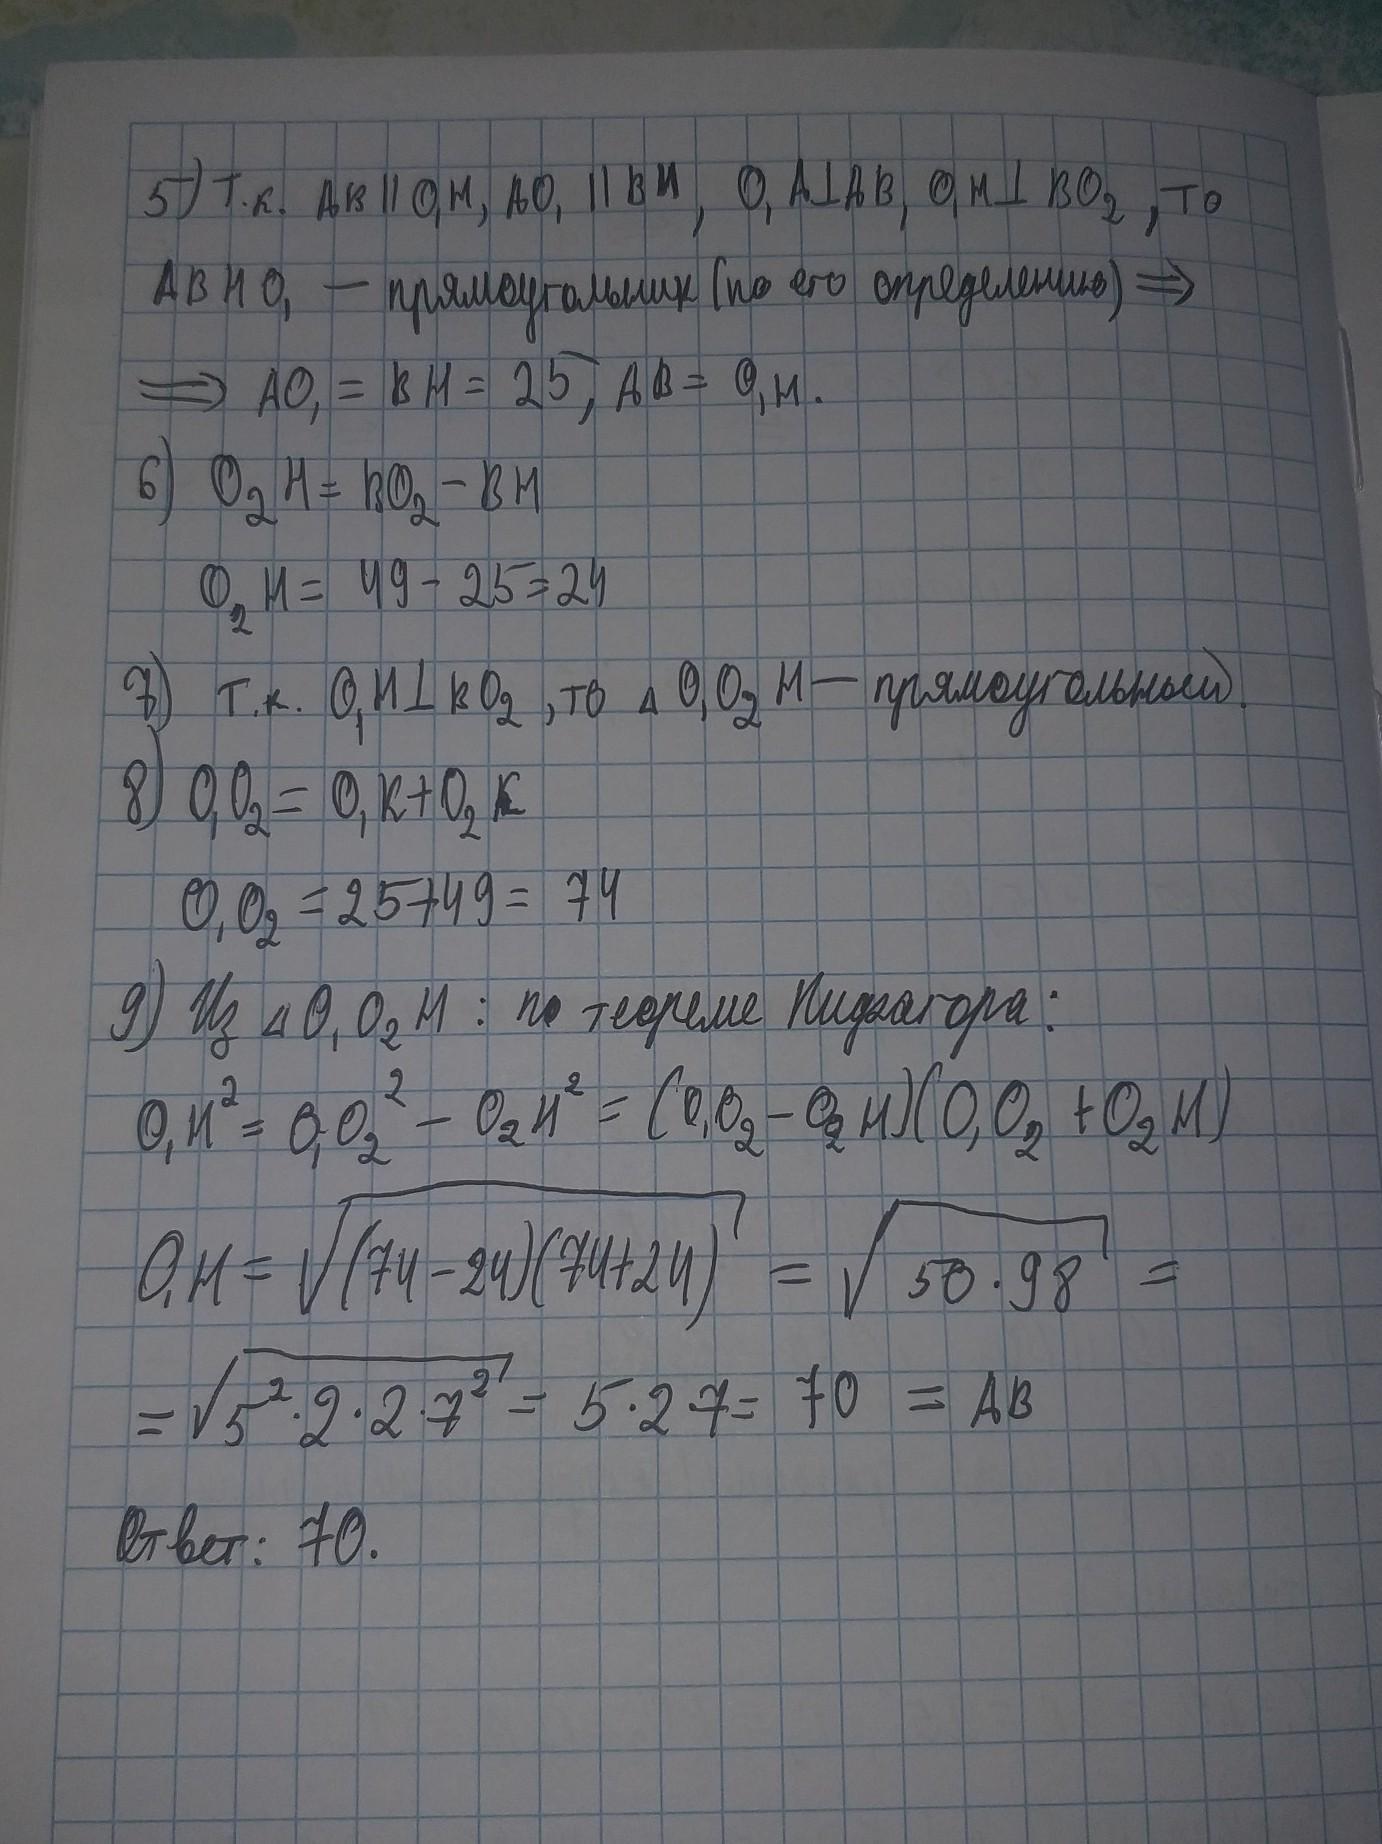 5) Т.к. AB || O₁H, AO₁ || BH, O₁A⊥AB, O₁H⊥BO₂, то
ABHO₁ — прямоугольник (по его определению) ⇒
⇒ AO₁ = BH = 25, AB = O₁H.
6) O₂H = BO₂ - BH
O₂H = 49 - 25 = 24
7) т.к. O₁H⊥BO₂, то △O₁O₂H — прямоугольный.
8) O₁O₂ = O₁K + O₂K
O₁O₂ = 25 + 49 = 74
9) Из △O₁O₂H: по теореме Пифагора:
O₁H² = O₁O₂² - O₂H² = (O₁O₂ - O₂H)(O₁O₂ + O₂H)
O₁H = √(74-24)(74+24) = √50·98 =
= √5²·2·2·7² = 5·2·7 = 70 = AB
Ответ: 70.